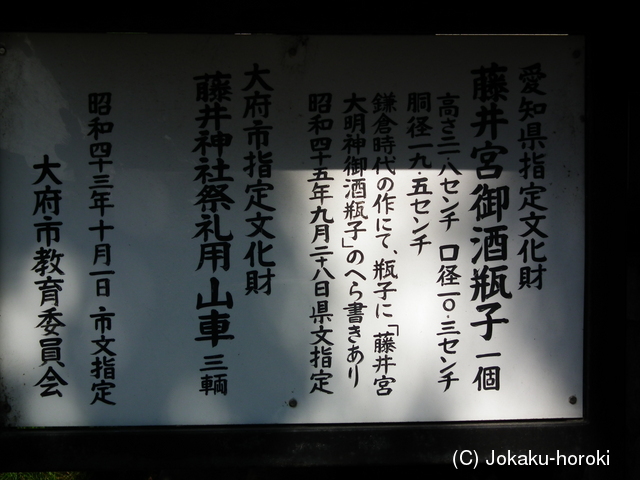 愛知県指定文化財
藤井宮御酒瓶子 一個
高さ二八センチ 口径一〇・三センチ
胴径一九・五センチ
鎌倉時代の作にて、瓶子に「藤井宮
大明神御酒瓶子」のへら書きあり
昭和四十五年九月二十八日県文指定
大府市指定文化財
藤井神社祭礼用山車 三輌
昭和四十三年十月一日 市文指定
大府市教育委員会
(C) Jokaku-horoki